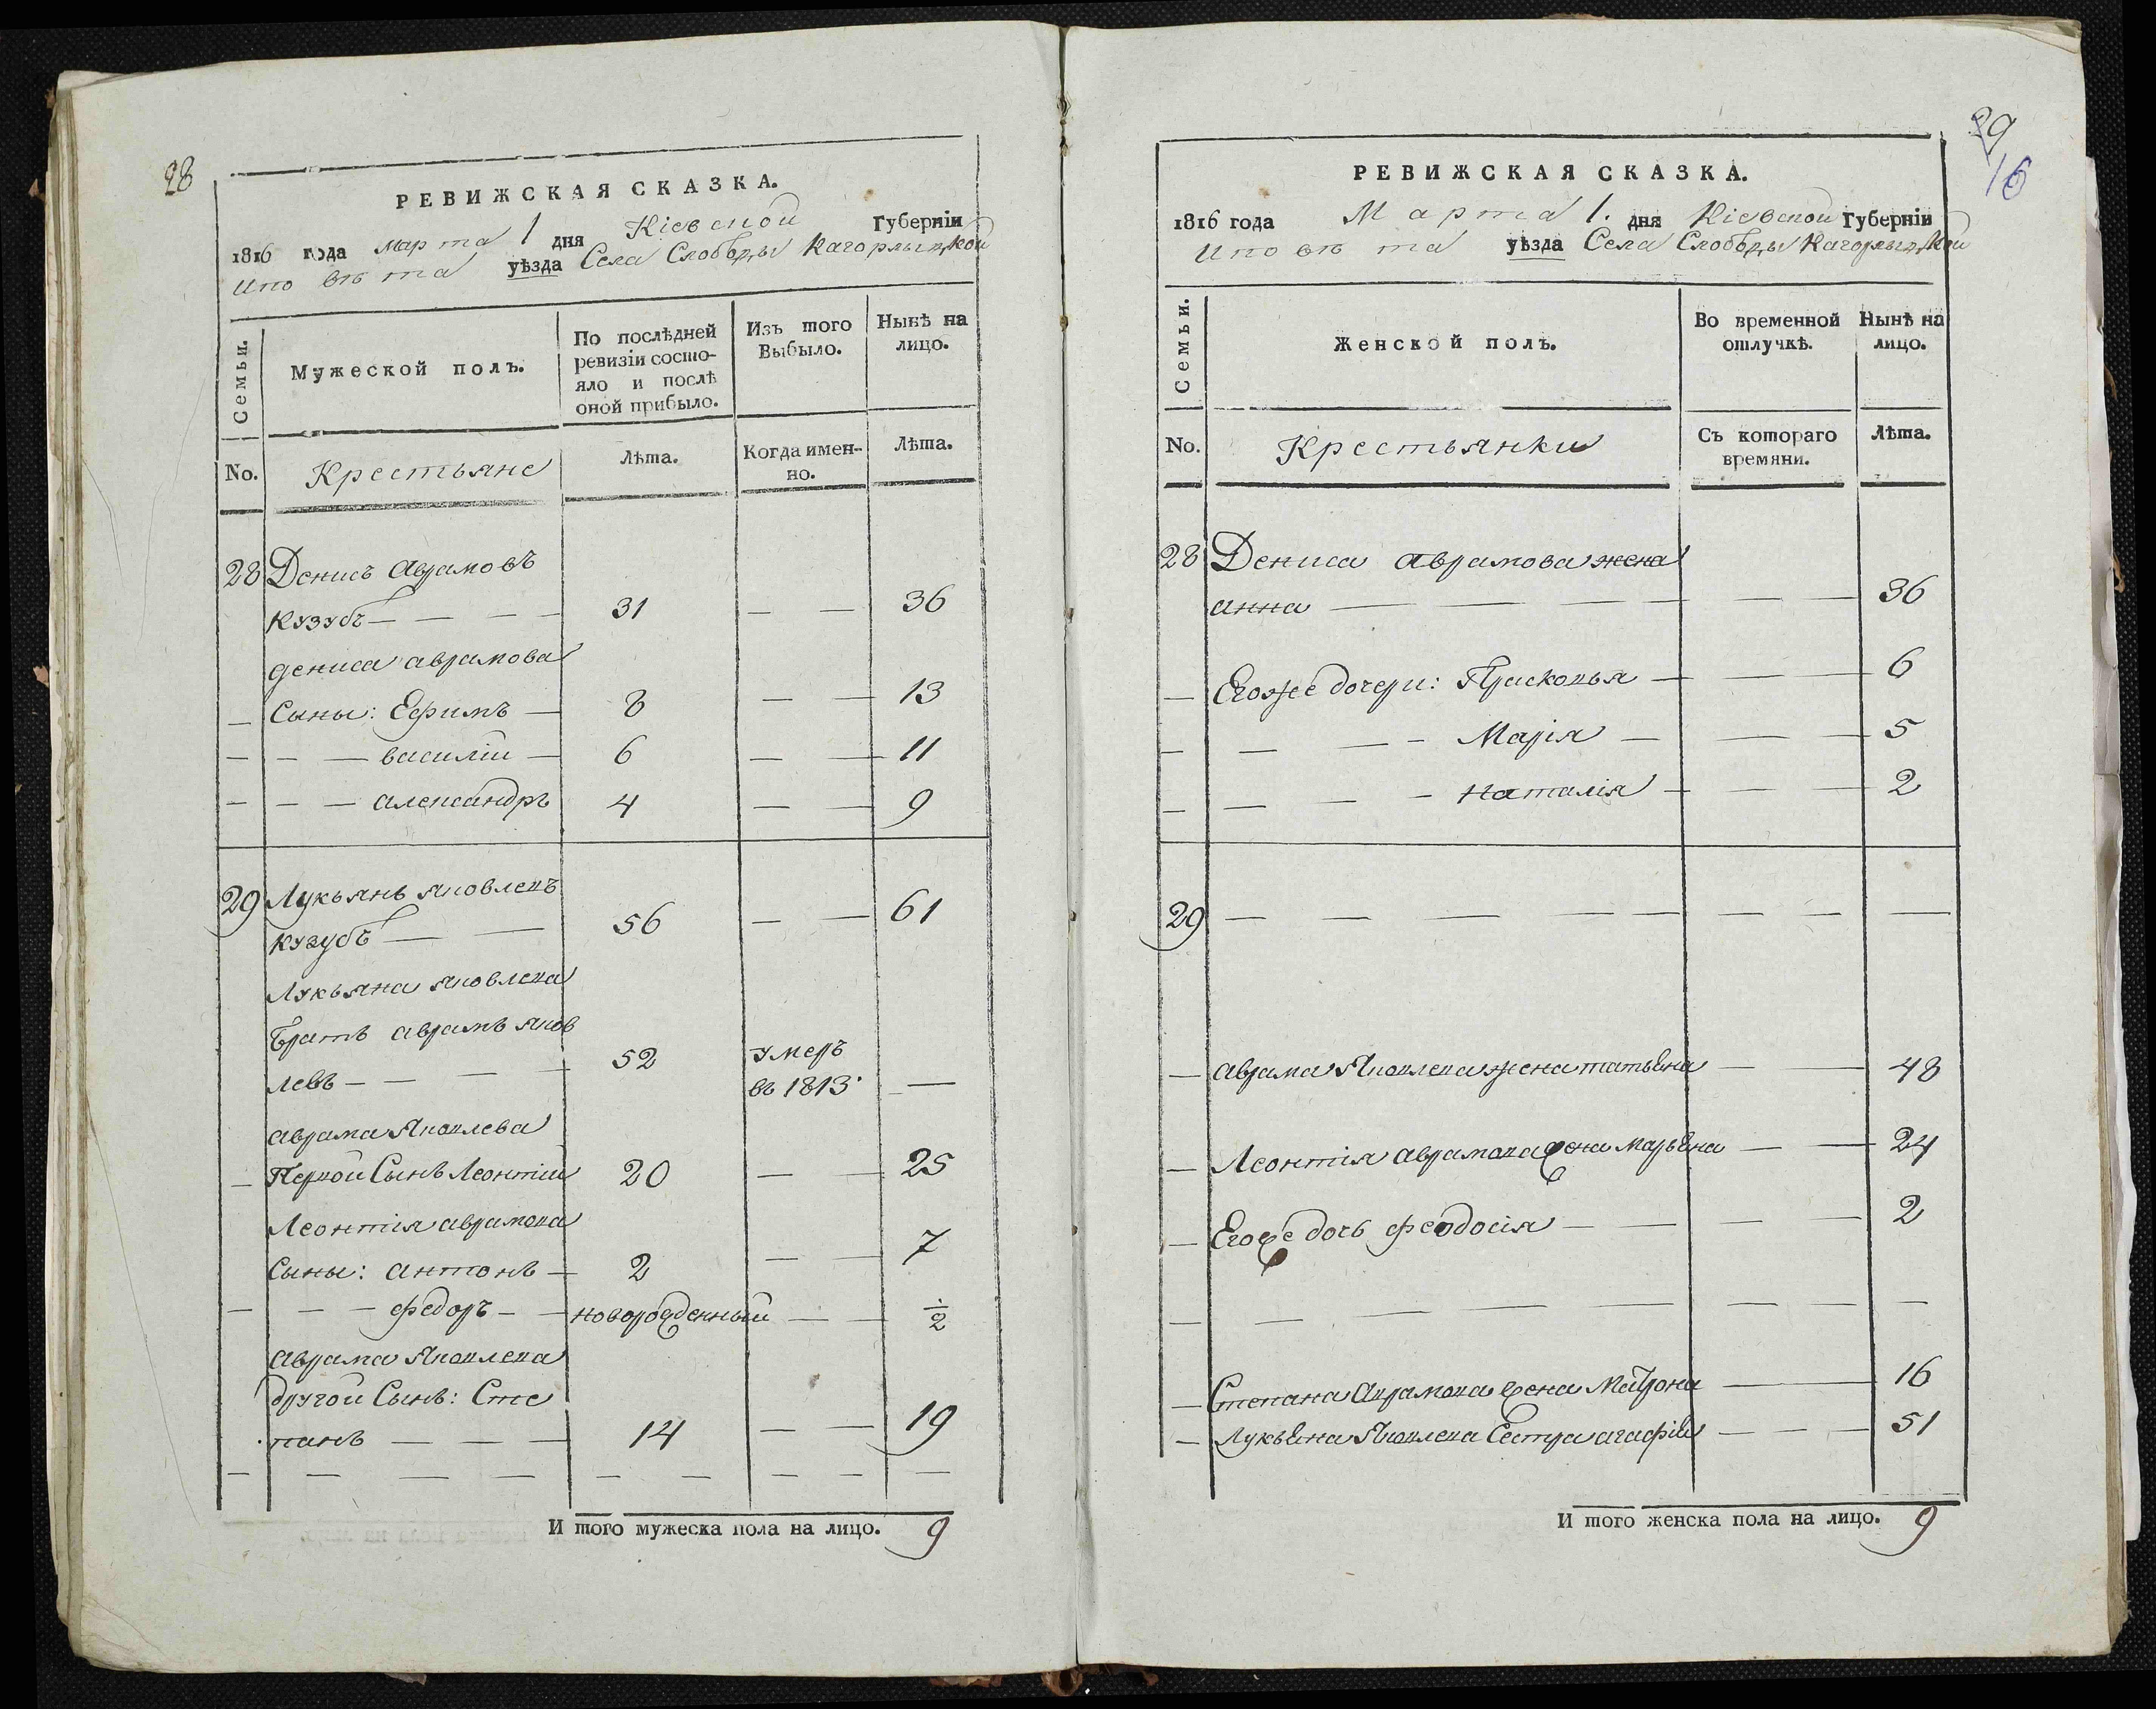 28
РЕВИЖСКАЯ СКАЗКА.
1816 года Марта 1 дня Кіевской Губерніи
Иповѣта уѣзда Села Слободы Кагорлыцкой
Семьи.
Мужеской полъ.
По послѣдней ревизіи состо-
яло и послѣ оной прибыло.
Изъ того Выбыло.
Нынѣ на лицо.
No.
Крестьяне
Лѣта.
Когда имен-
но.
Лѣта.
28 Денисъ Аврамовъ
Кузубъ — — — 31 — — 36
дениса аврамова
— Сыны: Ефимъ — 8 — — 13
— — — василій — 6 — — 11
— — — александръ 4 — — 9
29 Лукьянъ яковлевъ
кузубъ — — 56 — — 61
Лукьяна яковлева
братъ аврамъ яков
левъ — — — — 52 умеръ
въ 1813. —
аврама Яковлева
— Первой Сынъ Леонтій 20 — — 25
Леонтія аврамова
Сыны: антонъ — 2 — — 7
— — — федоръ — — новорожденный — — ½
аврама Яковлева
другой Сынъ: Сте
панъ — — — 14 — — 19
— — — — — — — — —
И того мужеска пола на лицо. 9
29
16
РЕВИЖСКАЯ СКАЗКА.
1816 года Марта 1. дня Кіевской Губерніи
Иповѣта уѣзда Села Слободы Кагорлыцкой
Семьи.
Женской полъ.
Во временной отлучкѣ.
Нынѣ на лицо.
No.
Крестьянки
Съ котораго времяни.
Лѣта.
28 Дениса аврамова жена
анна — — — — — — 36
— Егоже дочери: Прасковья — — — 6
— — — — Марія — — — 5
— — — — Наталія — — — 2
29 — — — — — — — — —
— аврама Яковлева жена татьяна — — 48
— Леонтія аврамова жена Марьяна — — 24
— Егоже дочь феодосія — — — — 2
— — — — — — — — —
— Степана Аврамова жена Матрона — 16
— Лукьяна Яковлева Сестра агафія — — — 51
И того женска пола на лицо. 9